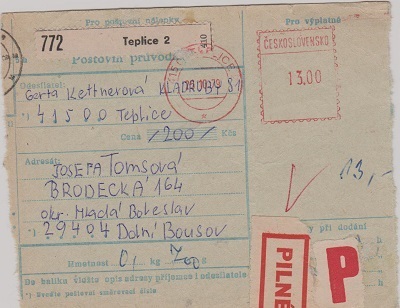 Pro poštovní nálepku
Pro výplatné
772
Teplice 2
410
Poštovní průvodka
ČESKOSLOVENSKO
13,00
TEPLICE
Odesílatel:
Gerta Kettnerová KLADRUBY 81
41500 Teplice
Cena /200/ Kčs
Adresát:
JOSEFA TOMSOVÁ
BRODECKÁ 164
okr. Mladá Boleslav
29404 Dolní Bousov
13,-
při dodání
Hmotnost 0,- kg 700
Do balíku vložte opis adresy příjemce i odesílatele
*) Uveďte poštovní směrovací číslo
PILNÉ
P